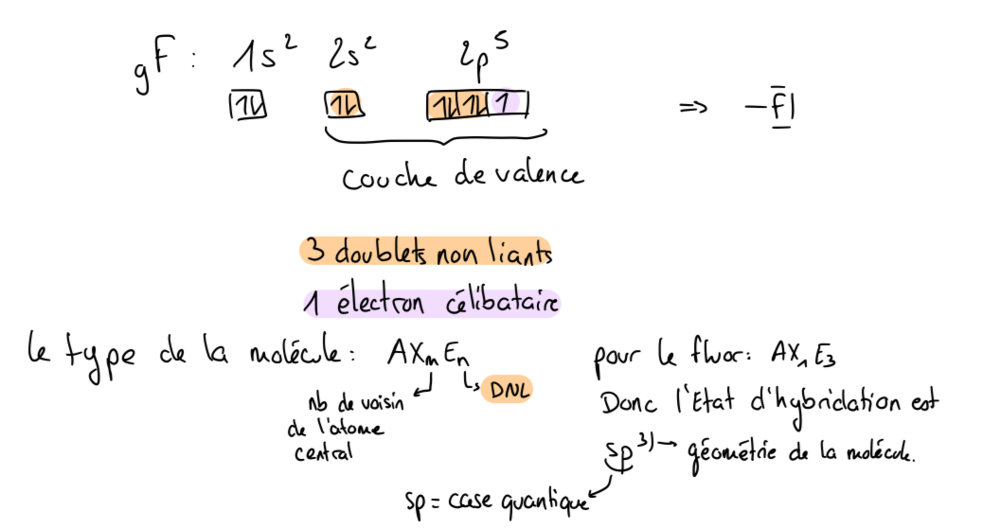 9F : 1s² 2s² 2p⁵
1L 1L 1L 1L 1 => -F|
couche de valence
3 doublets non liants
1 électron célibataire
le type de la molécule : AXmEn
DNL
nb de voisin
de l'atome
central
pour le fluor : AX₁E₃
Donc l'Etat d'hybridation est
sp³⁾→ géométrie de la molécule.
sp = case quantique